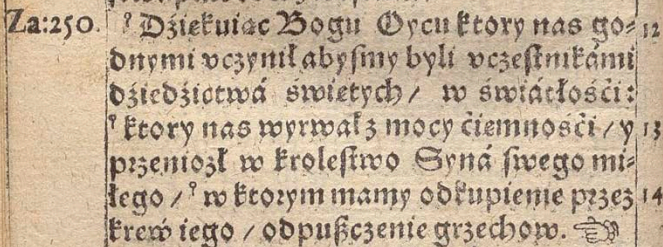 Za:250. ˀ Dźiękuiąc Bogu Oycu ktory nas go= 12
dnymi vczynił abysmy byli vczestnikámi
dźiedźictwá świętych / w świátłośći:
ˀ ktory nas wyrwał z mocy ćiemnośći / y 13
przeniozł w krolestwo Syná swego mi=
łego / ˀ w ktorym mamy odkupienie przez 14
krew iego / odpuszczenie grzechow. ☜